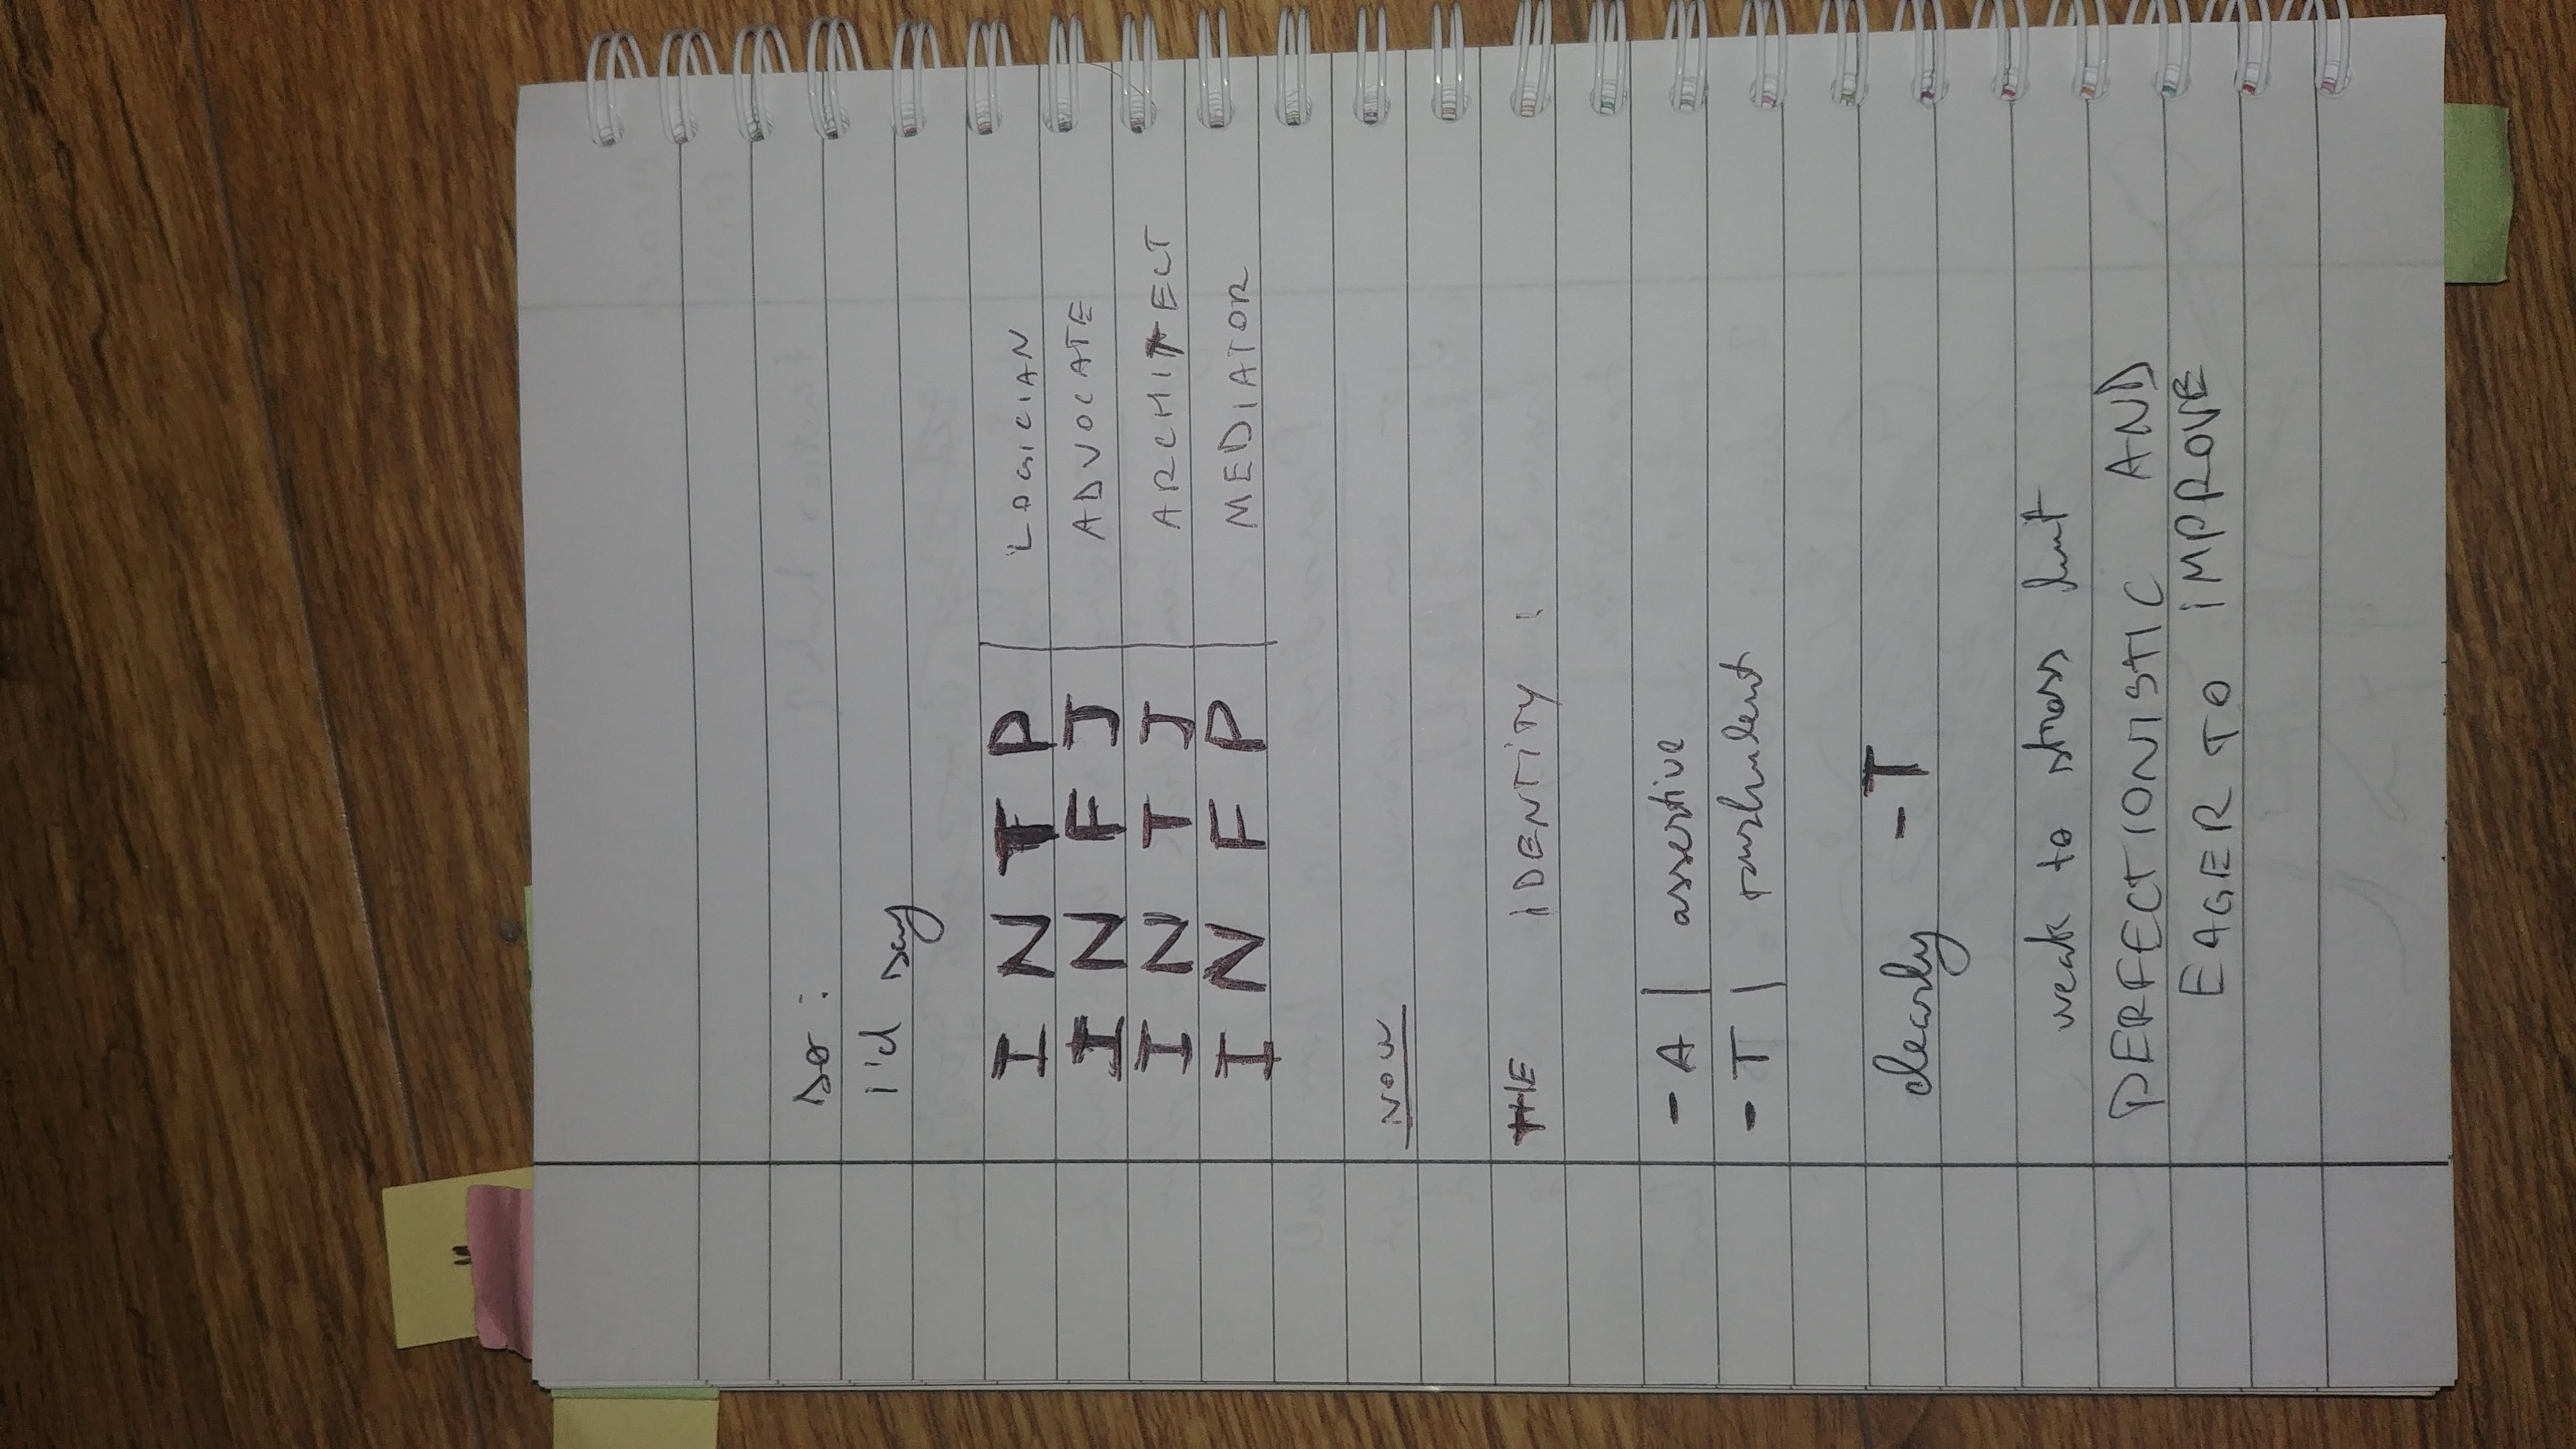 so :
i'd say
I N T P | LOGICIAN
I N F J | ADVOCATE
I N T J | ARCHITECT
I N F P | MEDIATOR
NOW
THE IDENTITY :
- A | assertive
- T | turbulent
clearly - T
weak to stress but
PERFECTIONISTIC AND
EAGER TO IMPROVE